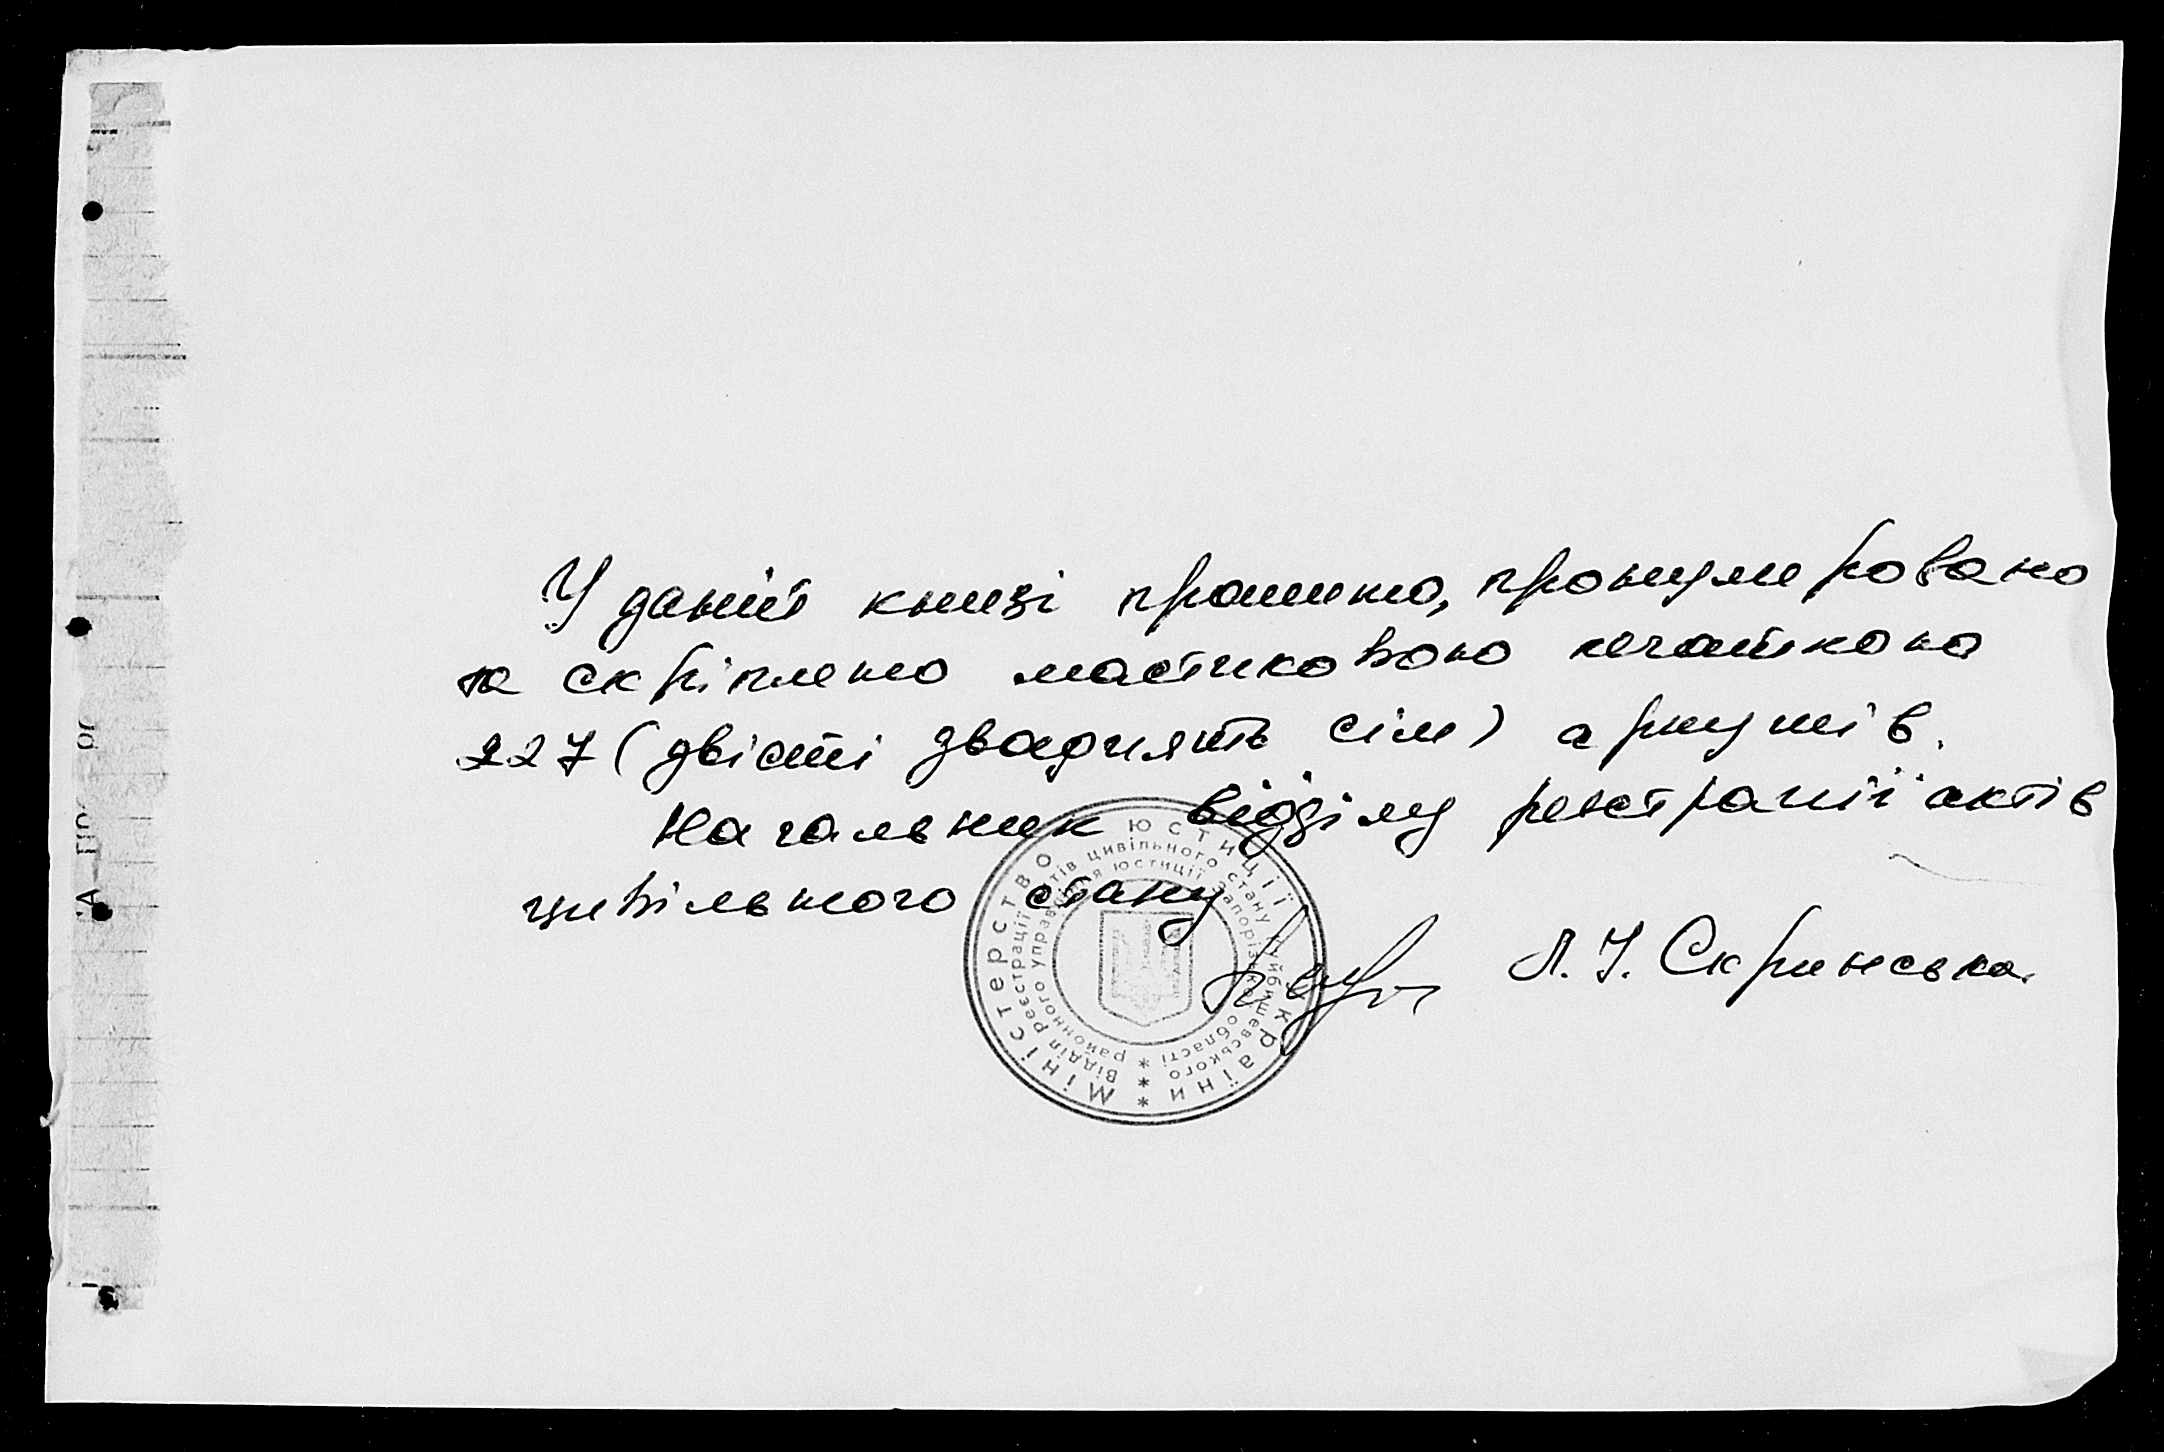 У даній книзі прошито, пронумеровано
та скріплено мастиковою печаткою
227 (двісті двадцять сім) аркушів.
Начальник відділу реєстрації актів
цивільного стану
Л. І. Скринська.
Міністерство юстиції України *
Відділ реєстрації актів цивільного стану Куйбишевського *
районного управління юстиції Запорізької області *